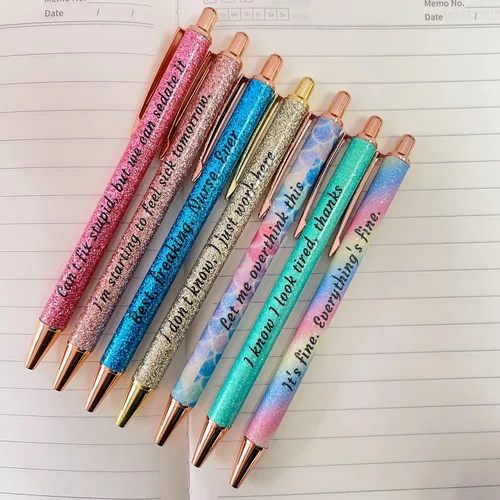 Memo No.
Date / /
Memo No.
Date / /
Can't fix stupid, but we can sedate it
I'm starting to feel sick tomorrow.
Best. Freaking. Nurse. Ever
I don't know, I just work here
Let me overthink this
I know I look tired, thanks
It's fine. Everything's fine.